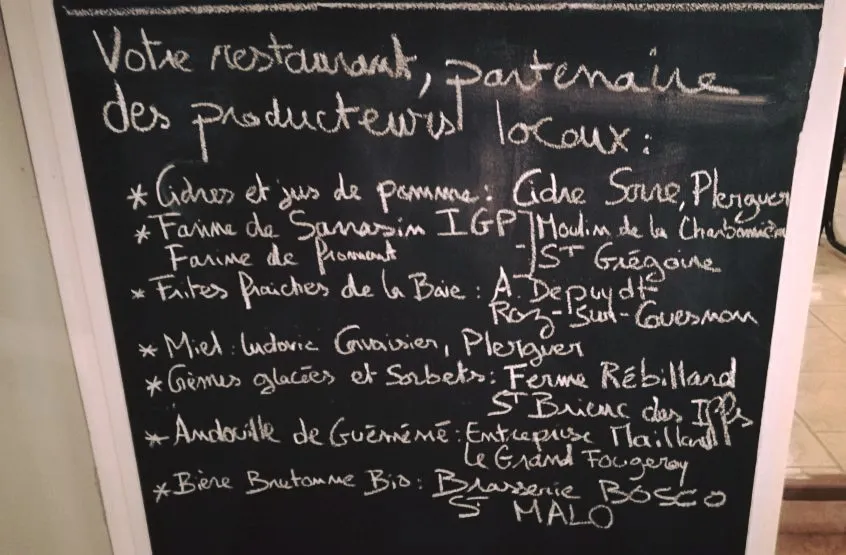 Votre restaurant, partenaire
des producteurs locaux :
* Cidres et jus de pomme : Cidre Sorre, Plerguer
* Farine de Sarrasin IGP Moulin de la Charbonnière
Farine de froment - St Grégoire
* Frites fraîches de la Baie : A. Depuydt
Roz-sur-Couesnon
* Miel : Ludovic , Plerguer
* Crèmes glacées et Sorbets : Ferme Rébillard
St Brieuc des Iffs
* Andouille de Guéméné : Entreprise Maillard
Le Grand Fougeray
* Bière Bretonne Bio : Brasserie BOSCO
St MALO